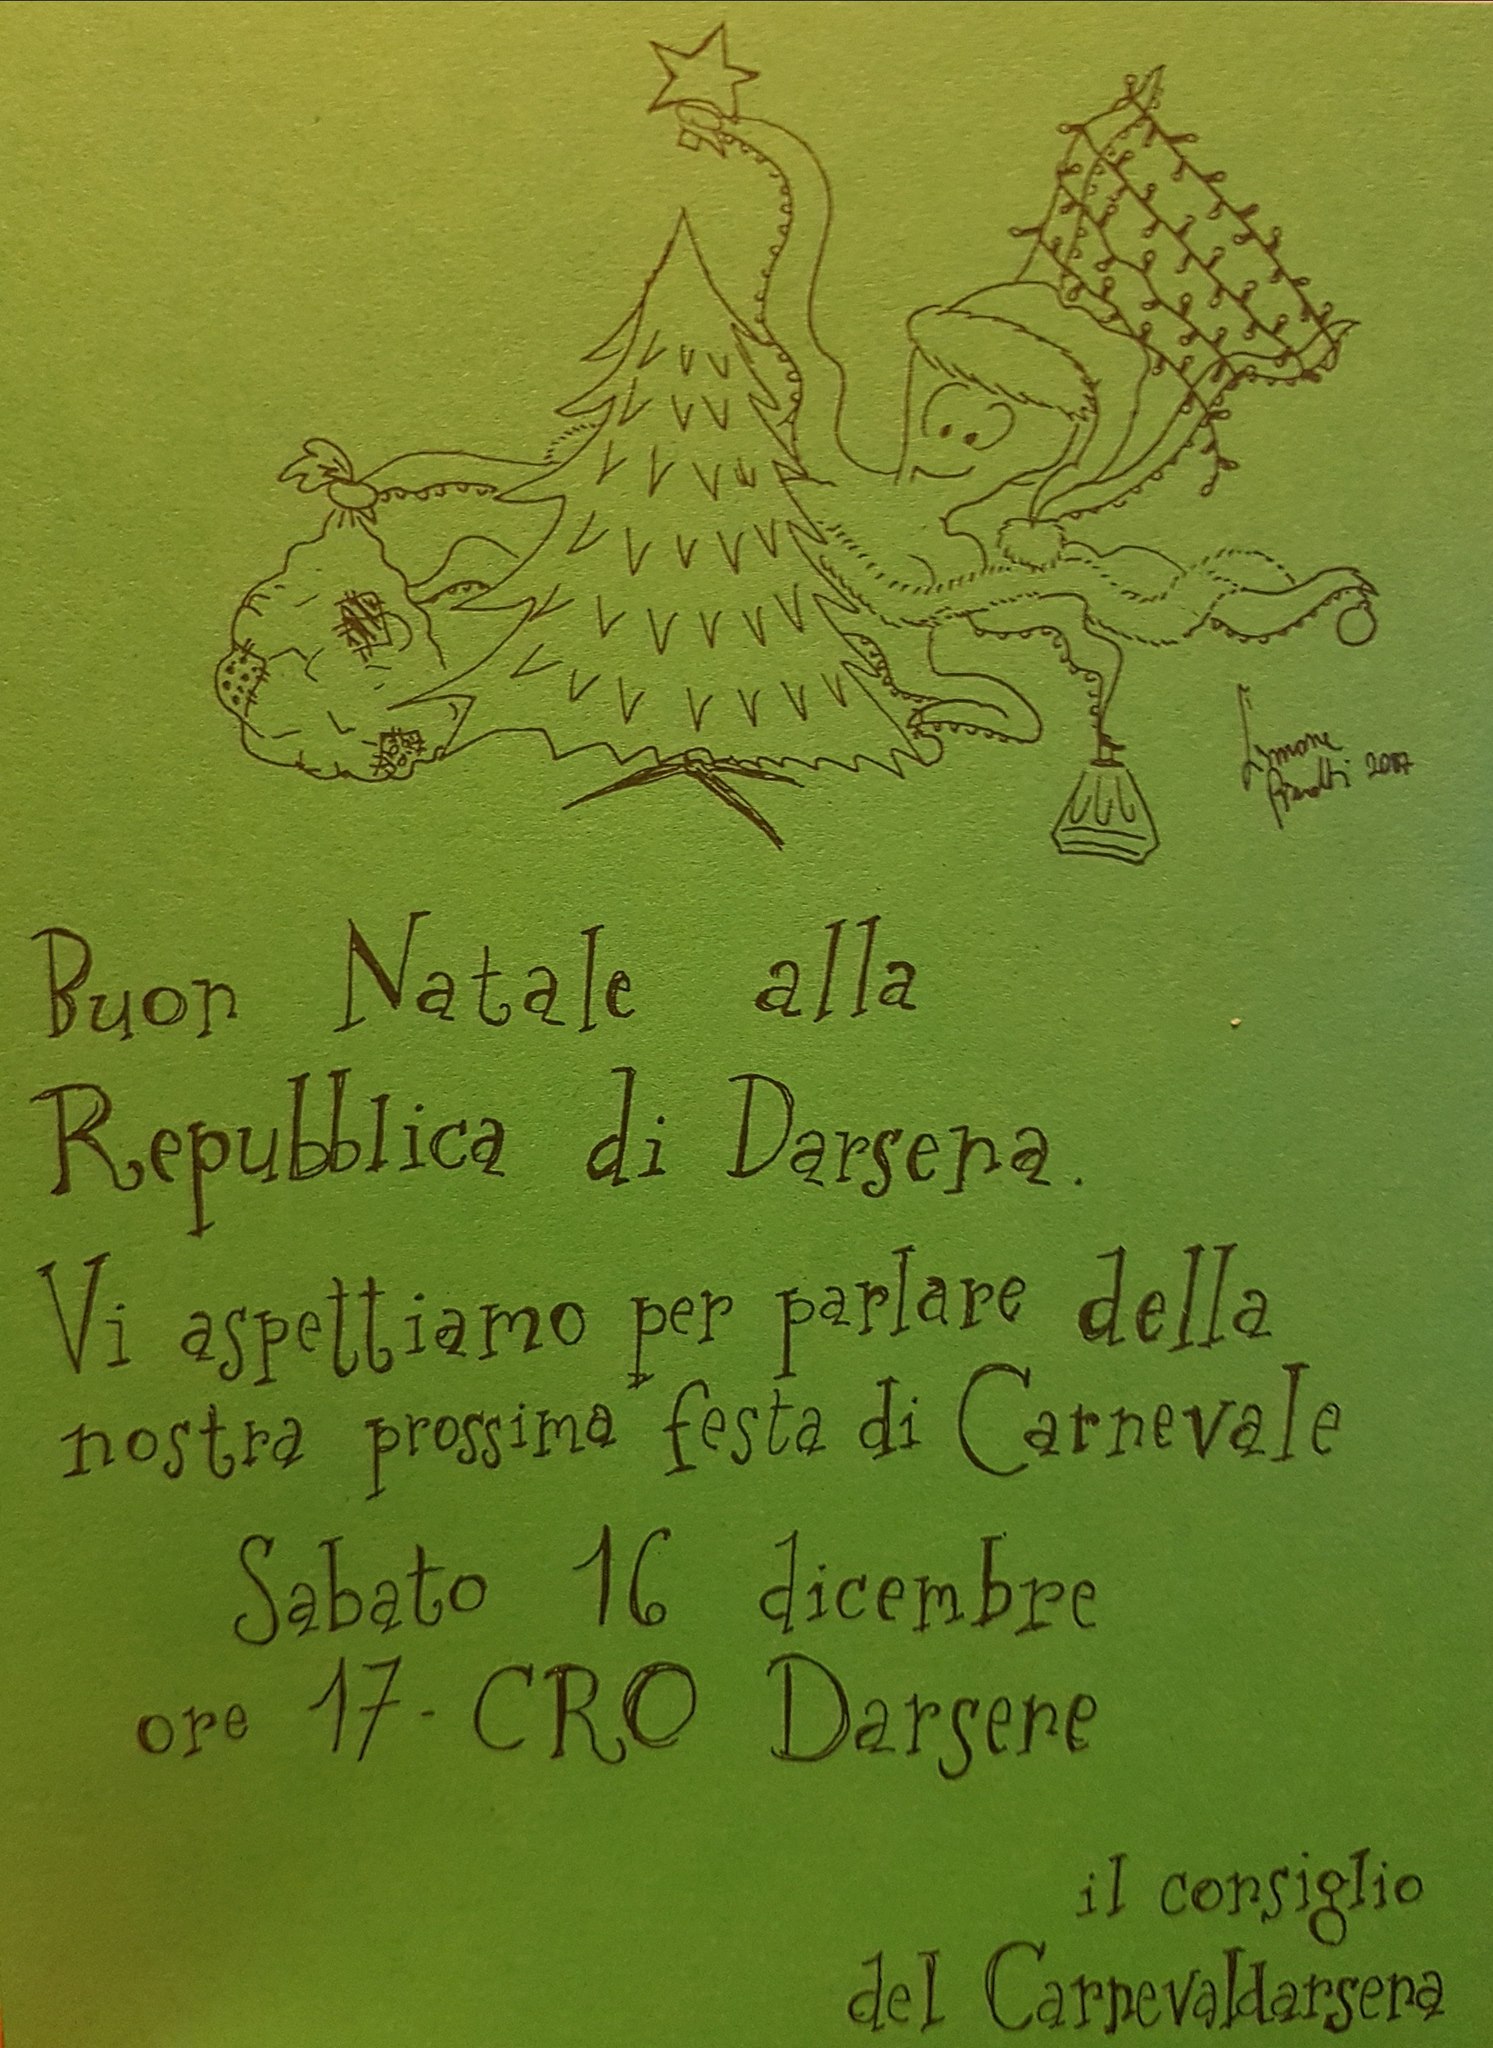 Simone
2017
Buon Natale alla
Repubblica di Darsena.
Vi aspettiamo per parlare della
nostra prossima festa di Carnevale
Sabato 16 dicembre
ore 17 - CRO Darsene
il consiglio
del Carnevaldarsena